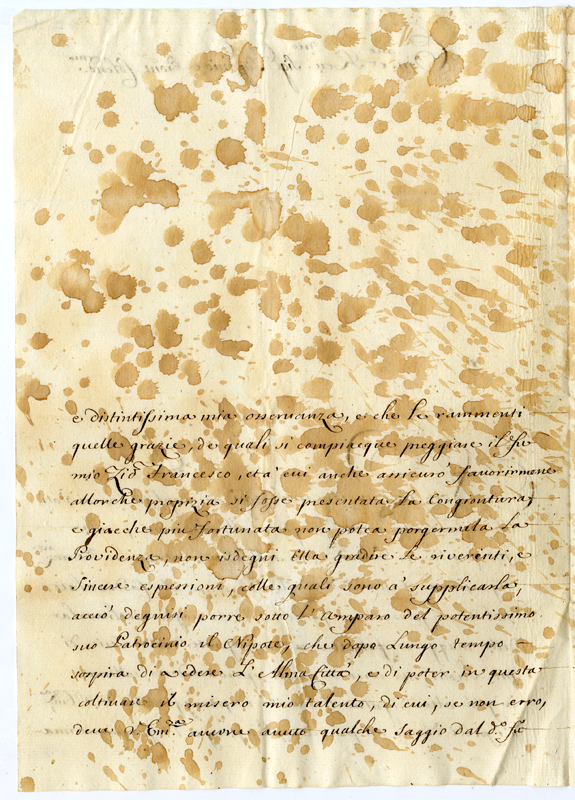 e distintissima mia osservanza, e che le rammenti
quelle grazie, de quali si compiacque preggiare il fu
mio Zio Francesco, et a' cui anche assicurò favorirmene
allorche propizia si fosse presentata la Congiontura;
e giacche più fortunata non potea porgermela la
Providenza, non isdegni Ella gradire le riverenti, e
sincere espressioni, colle quali sono a' supplicarla,
acciò degnisi porre sotto l'amparo del potentissimo
suo Patrocinio il Nipote, che dopo lungo tempo
sospira di vedere l'Alma Città, e di poter in questa
coltivare il misero mio talento, di cui, se non erro,
deve V. Em.za avere avuto qualche saggio dal d.o fu